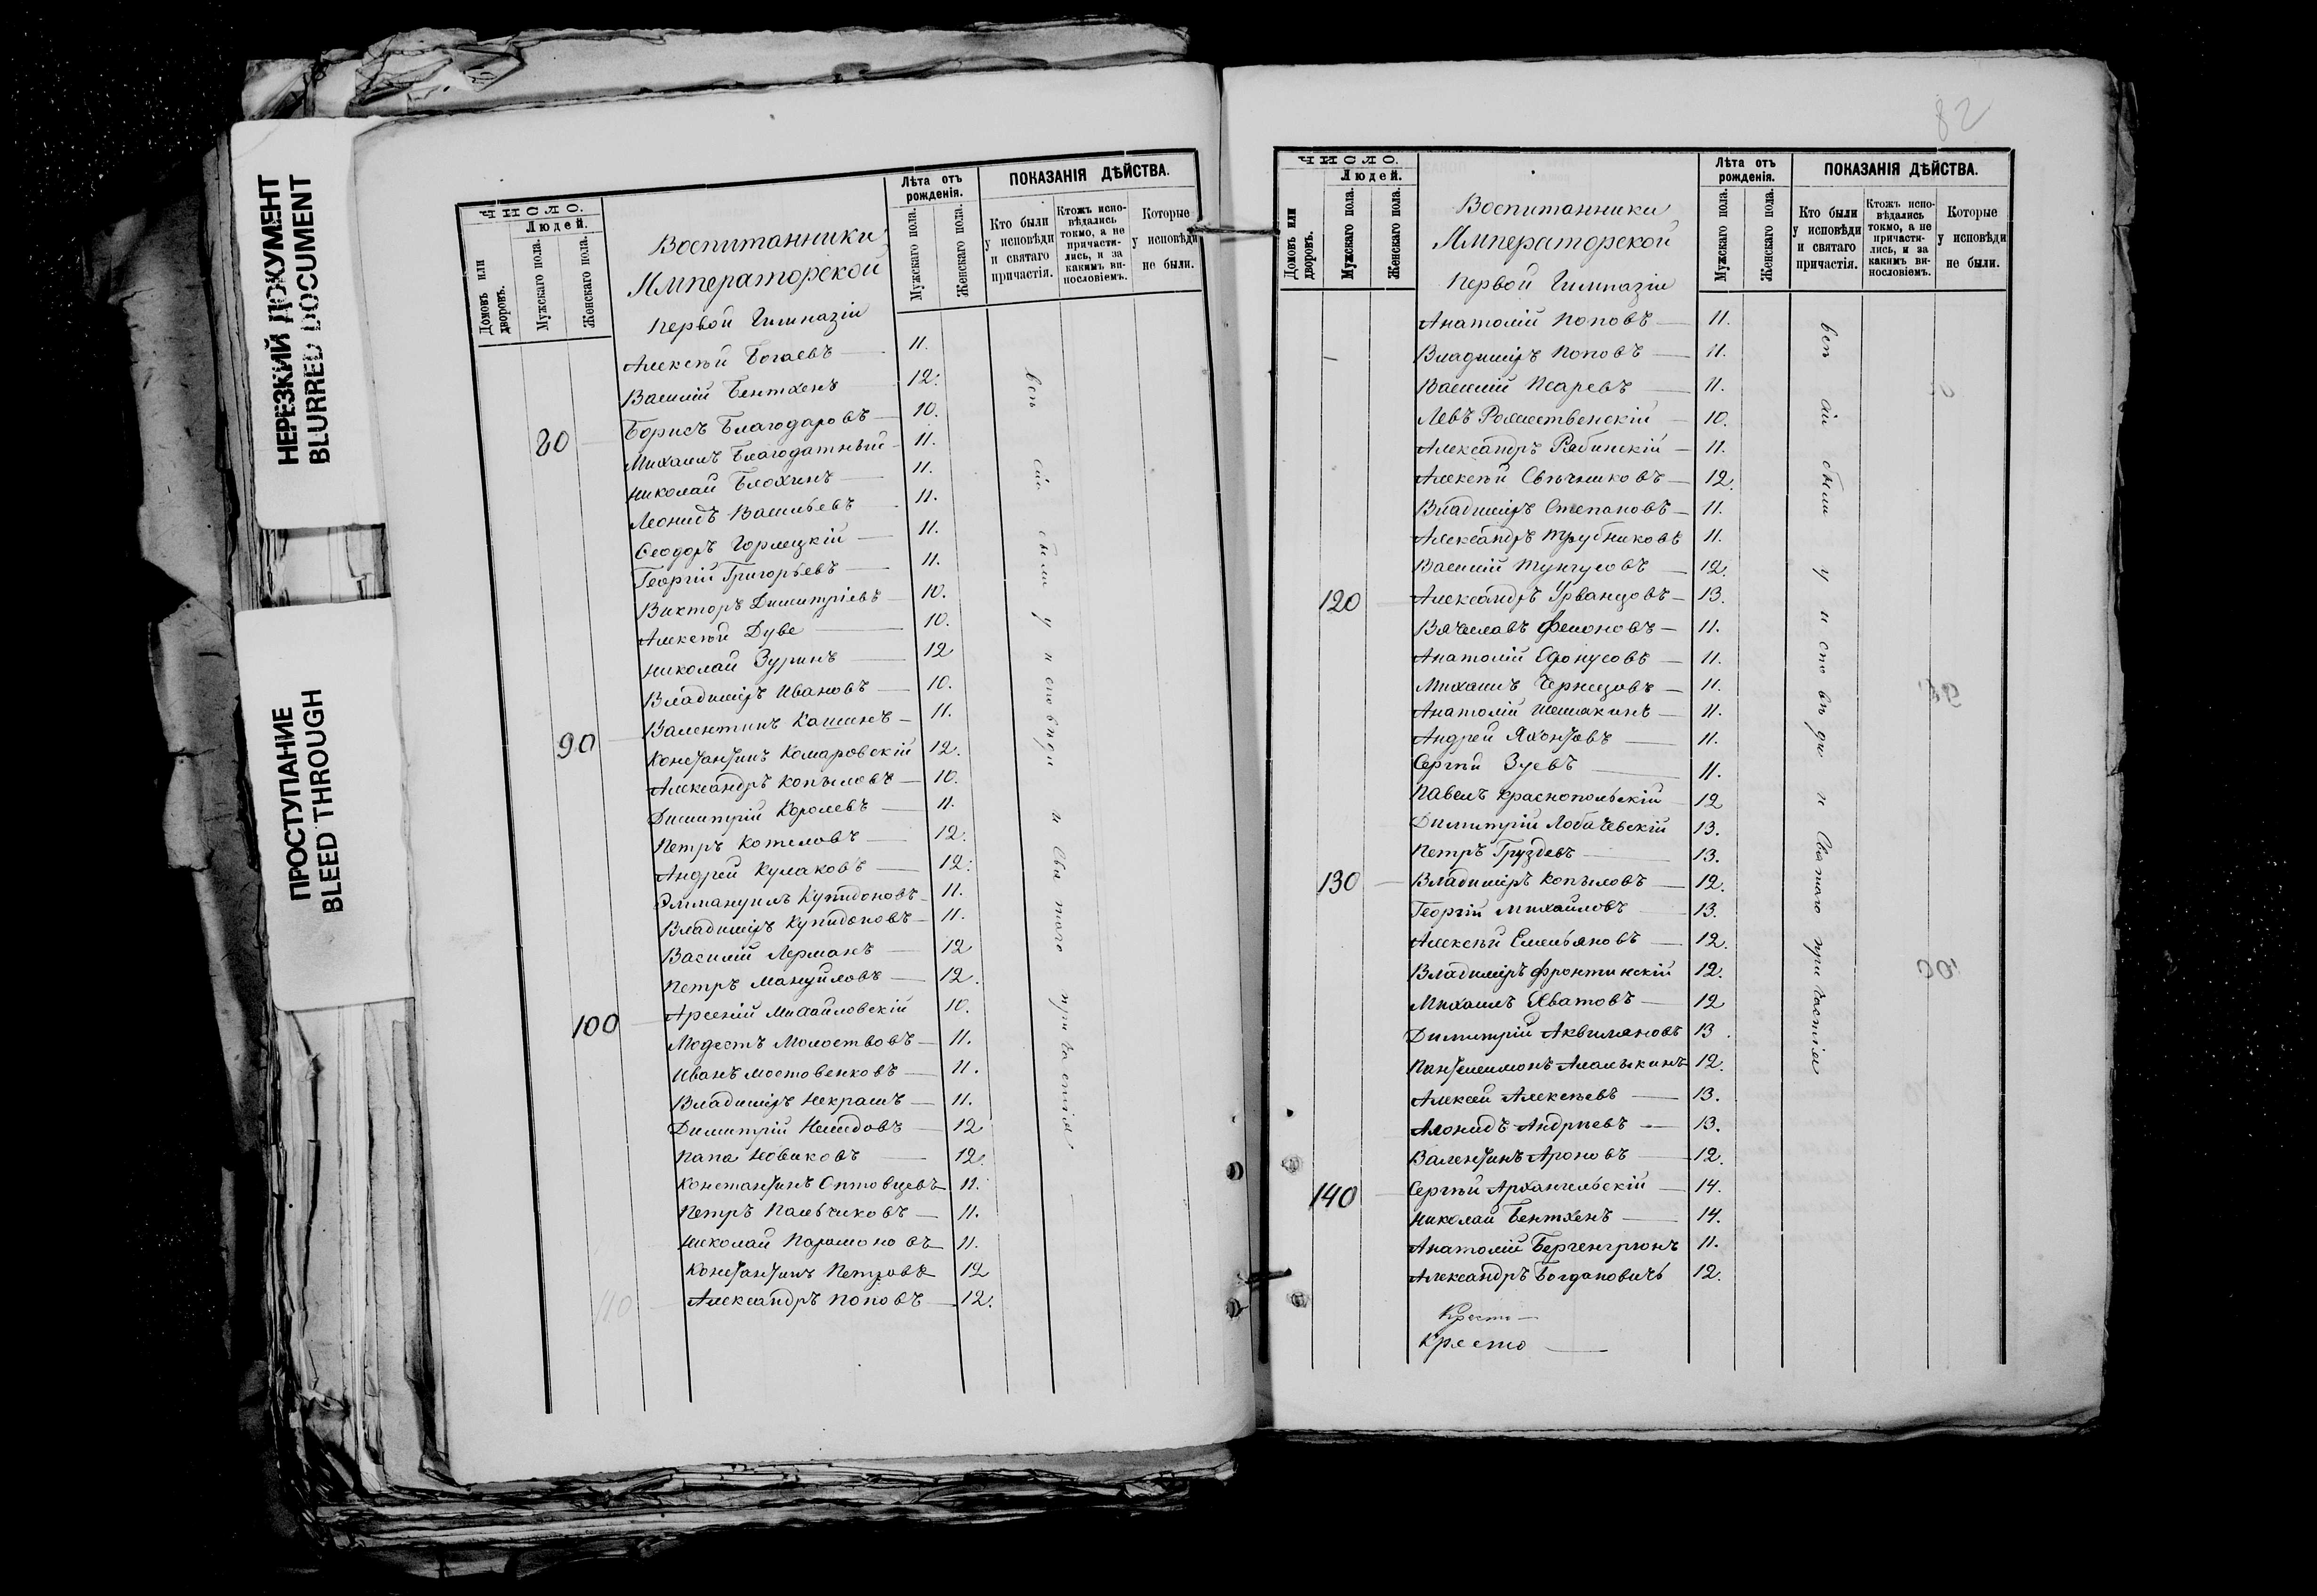 НЕРЕЗКИЙ ДОКУМЕНТ
BLURRED DOCUMENT
ПРОСТУПАНИЕ
BLEED THROUGH
ЧИСЛО.
Людей.
Домовъ или дворовъ.
Мужскаго пола.
Женскаго пола.
Воспитанники
Императорской
Первой Гимназіи
Лѣта отъ рожденія.
Мужскаго пола.
Женскаго пола.
ПОКАЗАНІЯ ДѢЙСТВА.
Кто были у исповѣди и святаго причастія.
Ктожъ исповѣдались токмо, а не причастились, и за какимъ винословіемъ.
Которые у исповѣди не были.
Алексѣй Богаевъ 11.
Василій Бентхенъ 12.
Борисъ Благодаровъ 10.
80 Михаилъ Благодатный 11.
Николай Блохинъ 11.
Леонидъ Васильевъ 11.
Ѳеодоръ Горлецкій 11.
Георгій Григорьевъ 11.
Викторъ Димитріевъ 10.
Алексѣй Дуве 10.
Николай Зуринъ 12
Владиміръ Ивановъ 10.
Валентинъ Кашинъ 11.
90 Константинъ Комаровскій 12.
Александръ Копыловъ 10.
Димитрій Королевъ 11.
Петръ Котеловъ 12.
Андрей Кулаковъ 12.
Эммануилъ Купидоновъ 11.
Владиміръ Купидоновъ 11.
Василій Лерманъ 12
Петръ Мануйловъ 12.
100 Арсеній Михайловскій 10.
Модестъ Молоствовъ 11.
Иванъ Мостовенковъ 11.
Владиміръ Некрашъ 11.
Димитрій Нелидовъ 12
Папа Новиковъ 12.
Константинъ Оптовцевъ 11.
Петръ Пальчиковъ 11.
Николай Парамоновъ 11.
Константинъ Петровъ 12
110 Александръ Поповъ 12.
всѣ сіи были у исповѣди и Святаго причастія
82
ЧИСЛО.
Людей.
Домовъ или дворовъ.
Мужскаго пола.
Женскаго пола.
Воспитанники
Императорской
Первой Гимназіи
Лѣта отъ рожденія.
Мужскаго пола.
Женскаго пола.
ПОКАЗАНІЯ ДѢЙСТВА.
Кто были у исповѣди и святаго причастія.
Ктожъ исповѣдались токмо, а не причастились, и за какимъ винословіемъ.
Которые у исповѣди не были.
Анатолій Поповъ 11.
Владиміръ Поповъ 11.
Василій Псаревъ 11.
Левъ Рождественскій 10.
Александръ Рябинскій 11.
Алексѣй Свѣчниковъ 12.
Владиміръ Степановъ 11.
Александръ Трубниковъ 11.
Василій Тунгусовъ 12.
120 Александръ Урванцовъ 13.
Вячеславъ Филоновъ 11.
Анатолій 11.
Михаилъ Чернецовъ 11.
Анатолій Шемякинъ 11.
Андрей Яхонтовъ 11.
Сергѣй Зуевъ 11.
Павелъ Краснопольскій 12
Димитрій Лобачевскій 13.
Петръ Груздевъ 13.
130 Владиміръ Копыловъ 12.
Георгій Михайловъ 13.
Алексѣй Емельяновъ 12.
Владиміръ Фронтинскій 12.
Михаилъ Хватовъ 12
Димитрій Аквиляновъ 13.
Пантелеимонъ Алалыкинъ 12.
Алексѣй Алексѣевъ 13.
Леонидъ Андреевъ 13.
Валентинъ Ароновъ 12.
140 Сергѣй Архангельскій 14.
Николай Бентхенъ 14.
Анатолій Бергенгрюнъ 11.
Александръ Богдановичъ 12.
всѣ сіи были у исповѣди и Святаго причастія